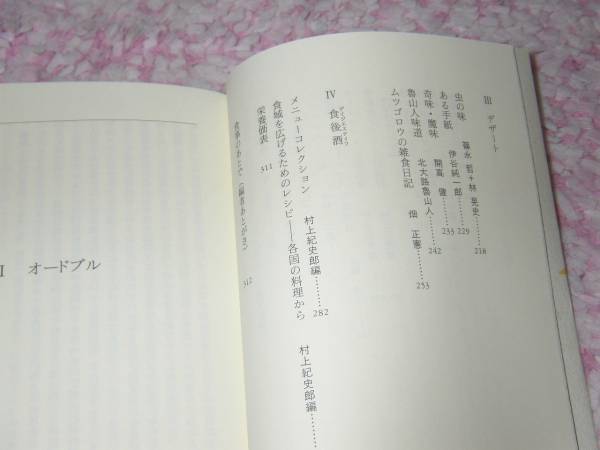 III デザート
虫の味 篠永 哲+林 晃史………218
ある手紙 伊谷純一郎……229
奇味・魔味 開高 健………233
魯山人味道 北大路魯山人……242
ムツゴロウの雑食日記 畑 正憲………253
IV 食後酒
メニューコレクション 村上紀史郎編………282
食域を広げるためのレシピ──各国の料理から 村上紀史郎編………
栄養価表 311
食事のあとで（編者あとがき） 312
I オードブル